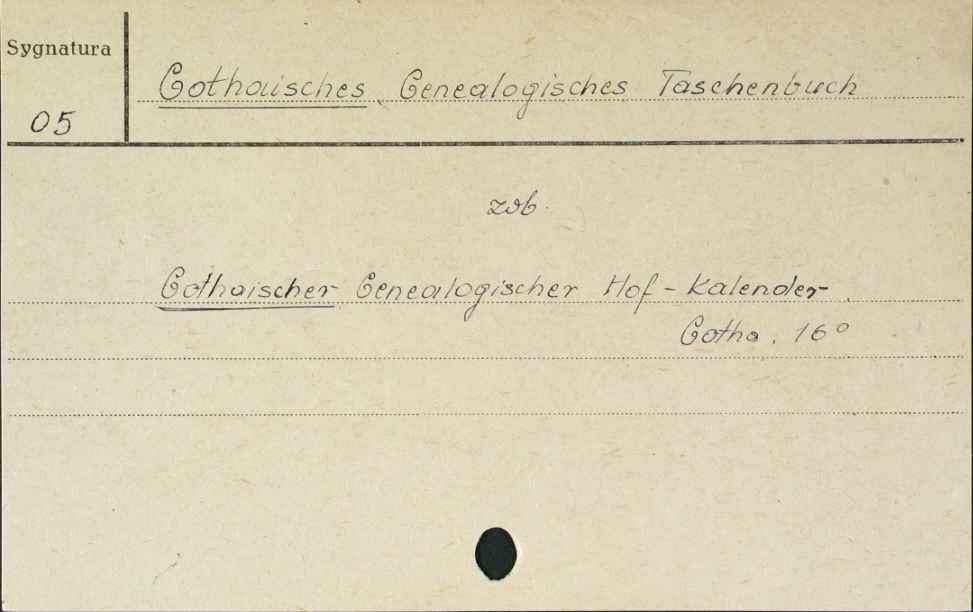 Sygnatura
05
Gothaisches Genealogisches Taschenbuch
zob.
Gothaischer Genealogischer Hof-Kalender.
Gotha. 16°